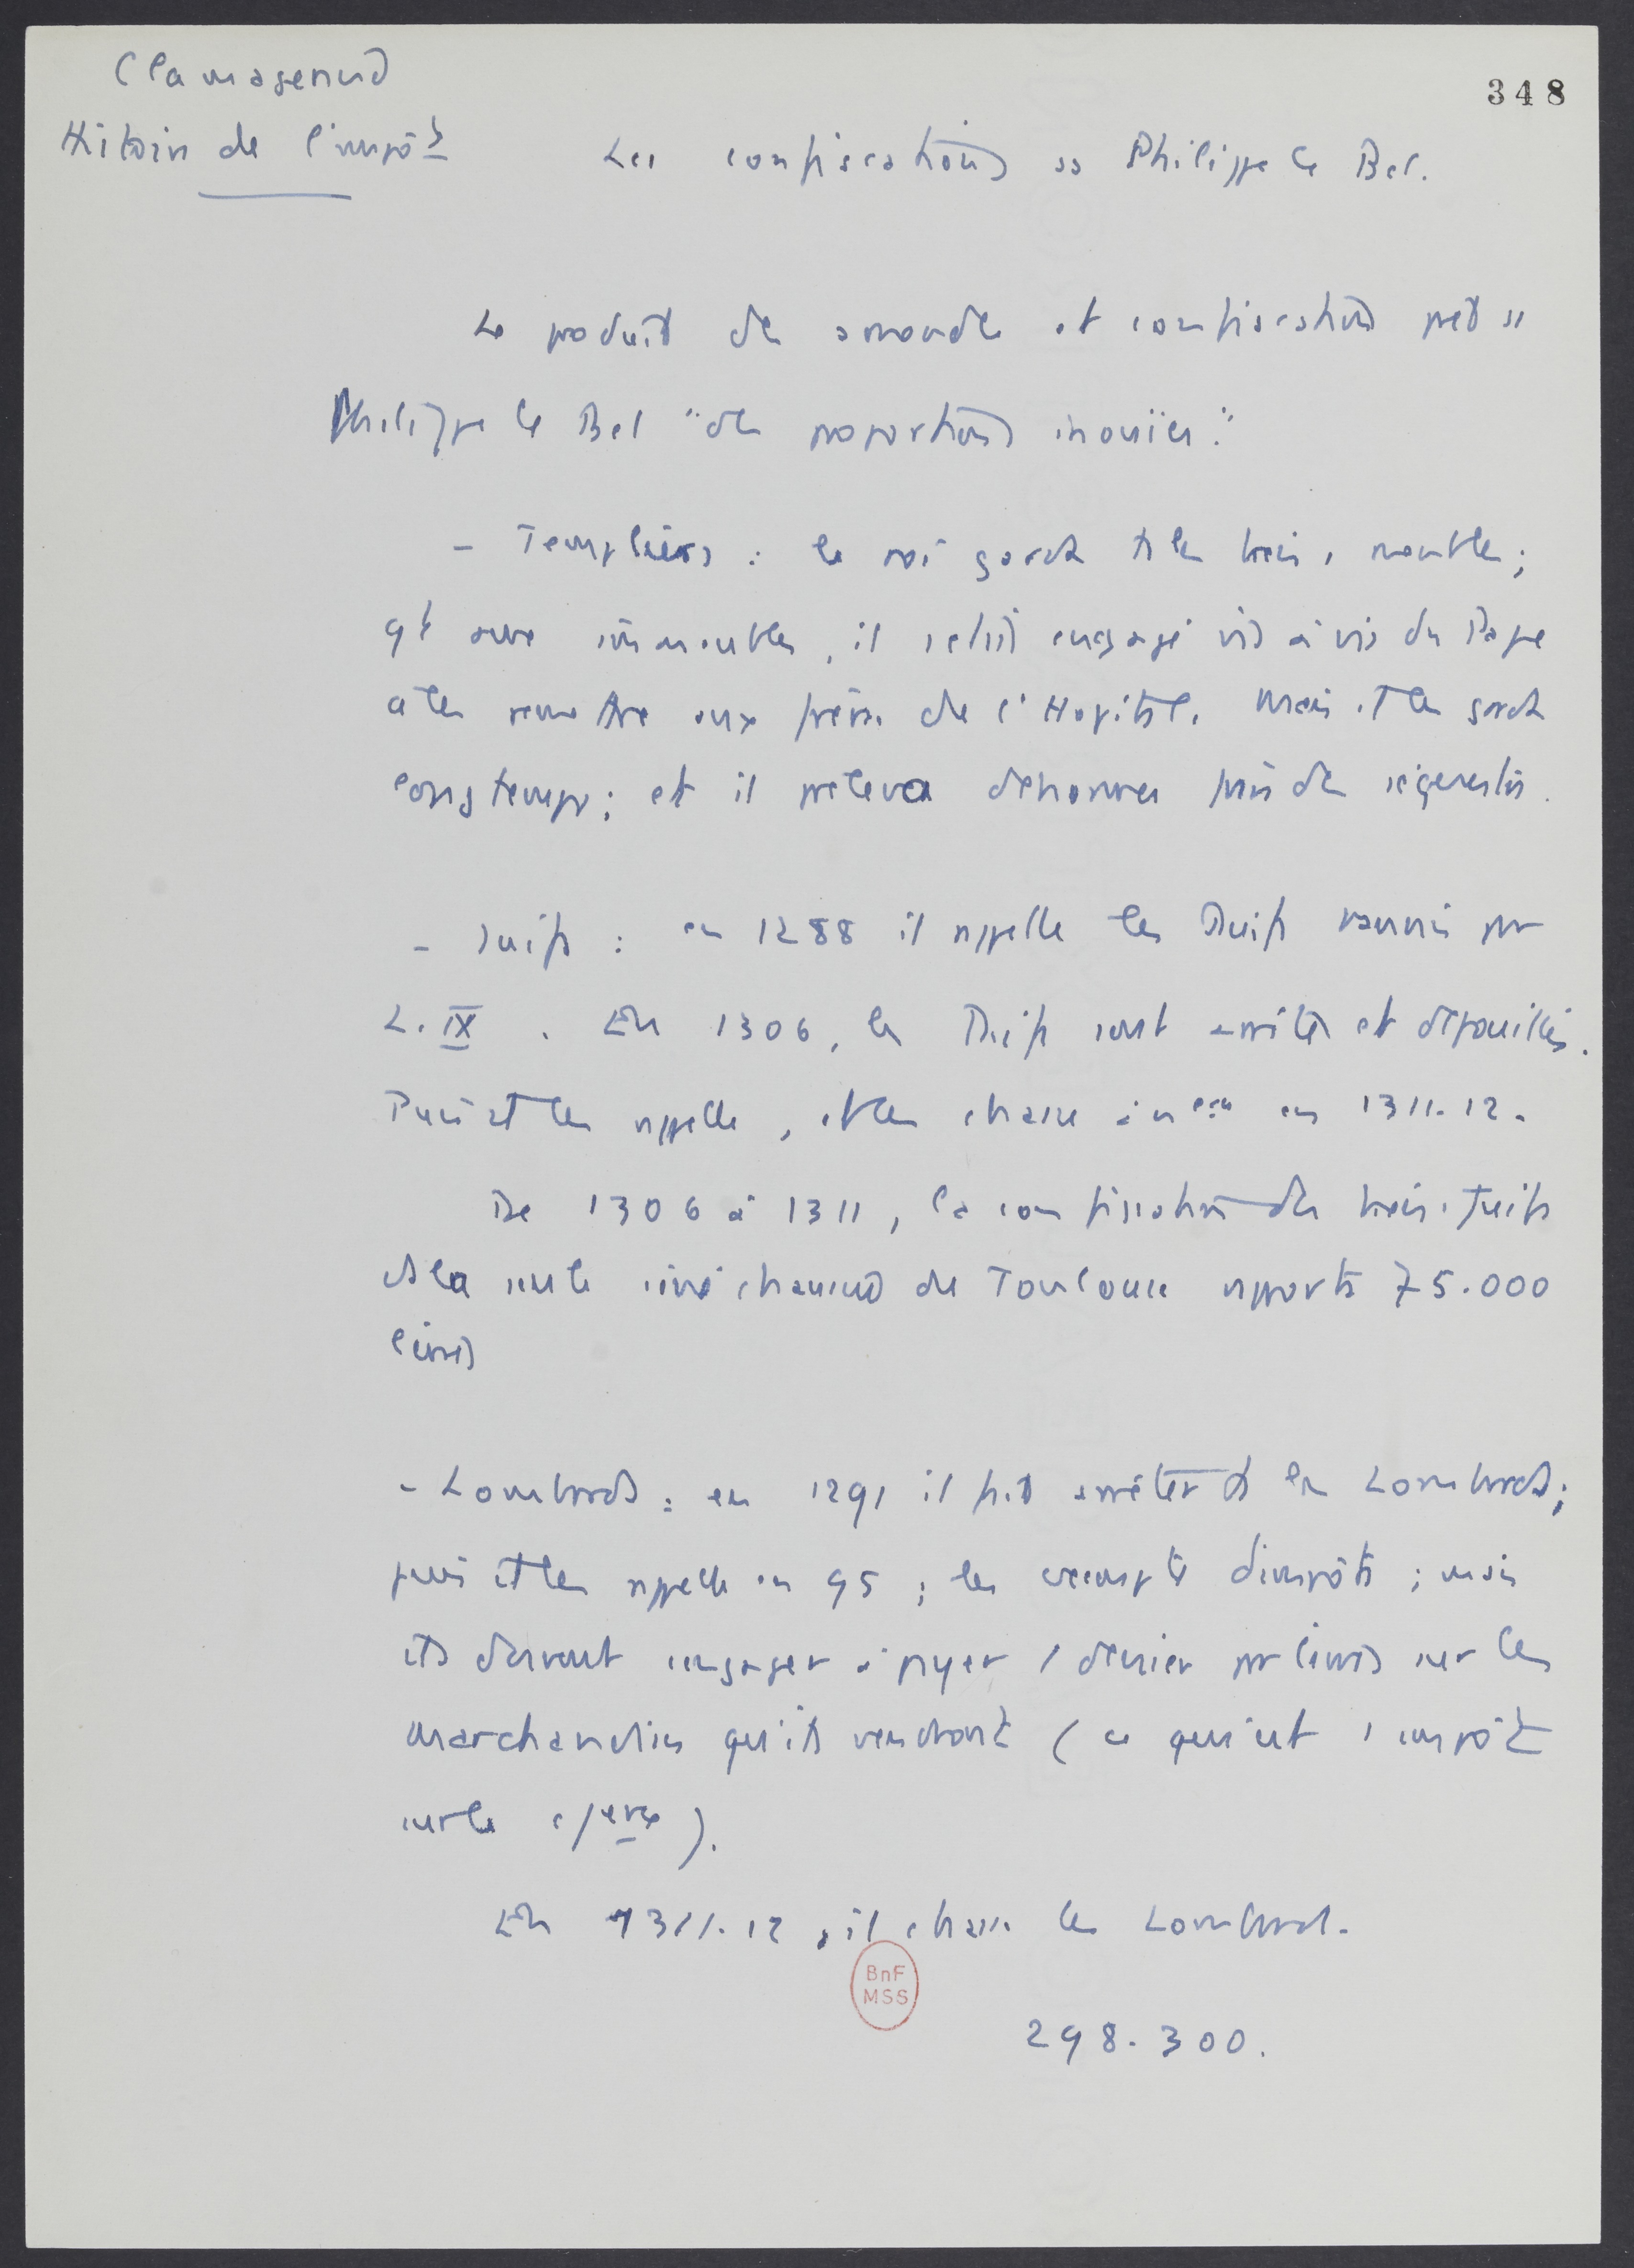 Clamagerand
348
Histoire de l'impôt
Les confiscations ss Philippe le Bel.
Le produit des amendes et confiscations prit ss
Philippe le Bel "des proportions inouïes".
- Templiers : le roi garde ts les biens meubles ;
qt aux immeubles, il s'était engagé vis à vis du Pape
à les remettre aux frères de l'Hôpital. Mais il les garde
longtemps ; et il préleva d'énormes frais de séquestre.
- Juifs : en 1288 il rappelle les Juifs bannis par
L. IX. En 1306, les Juifs sont arrêtés et dépouillés.
Puis il les rappelle, et les chasse à nveau en 1311.12.
De 1306 à 1311, la confiscation des biens juifs
ds la seule sénéchaussée de Toulouse rapporta 75.000
livres
- Lombards : en 1291 il fait arrêter ts les Lombards ;
puis il les rappelle en 95 ; les exempte d'impôts ; mais
ils doivent s'engager à payer 1 denier par livre sur les
marchandises qu'ils vendront (ce qui est 1 impôt
sur le
En 1311.12, il chasse les Lombards.
BnF
MSS
298.300.